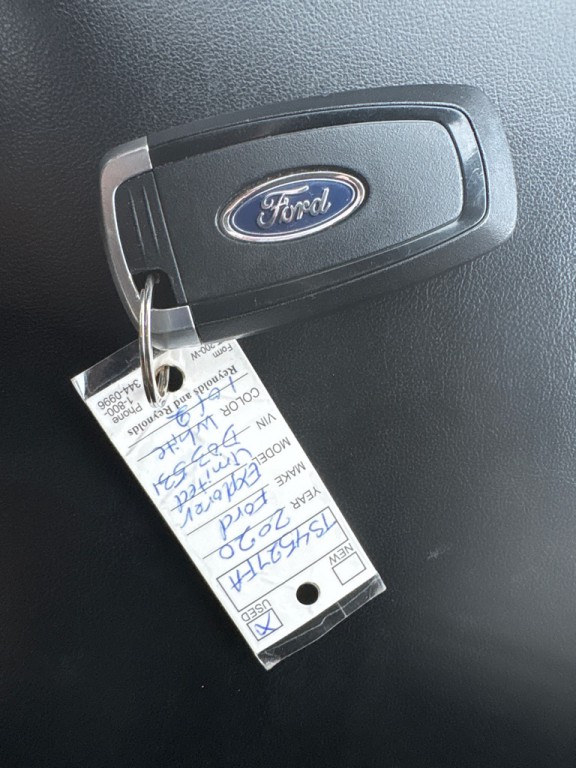 Ford
NEW
USED X
TS4527FA
YEAR 2020
MAKE Ford
MODEL Explorer
Limited
VIN D03531
COLOR White
1 of 2
Reynolds and Reynolds
Phone
1-800-
344-0996
Form
200-W